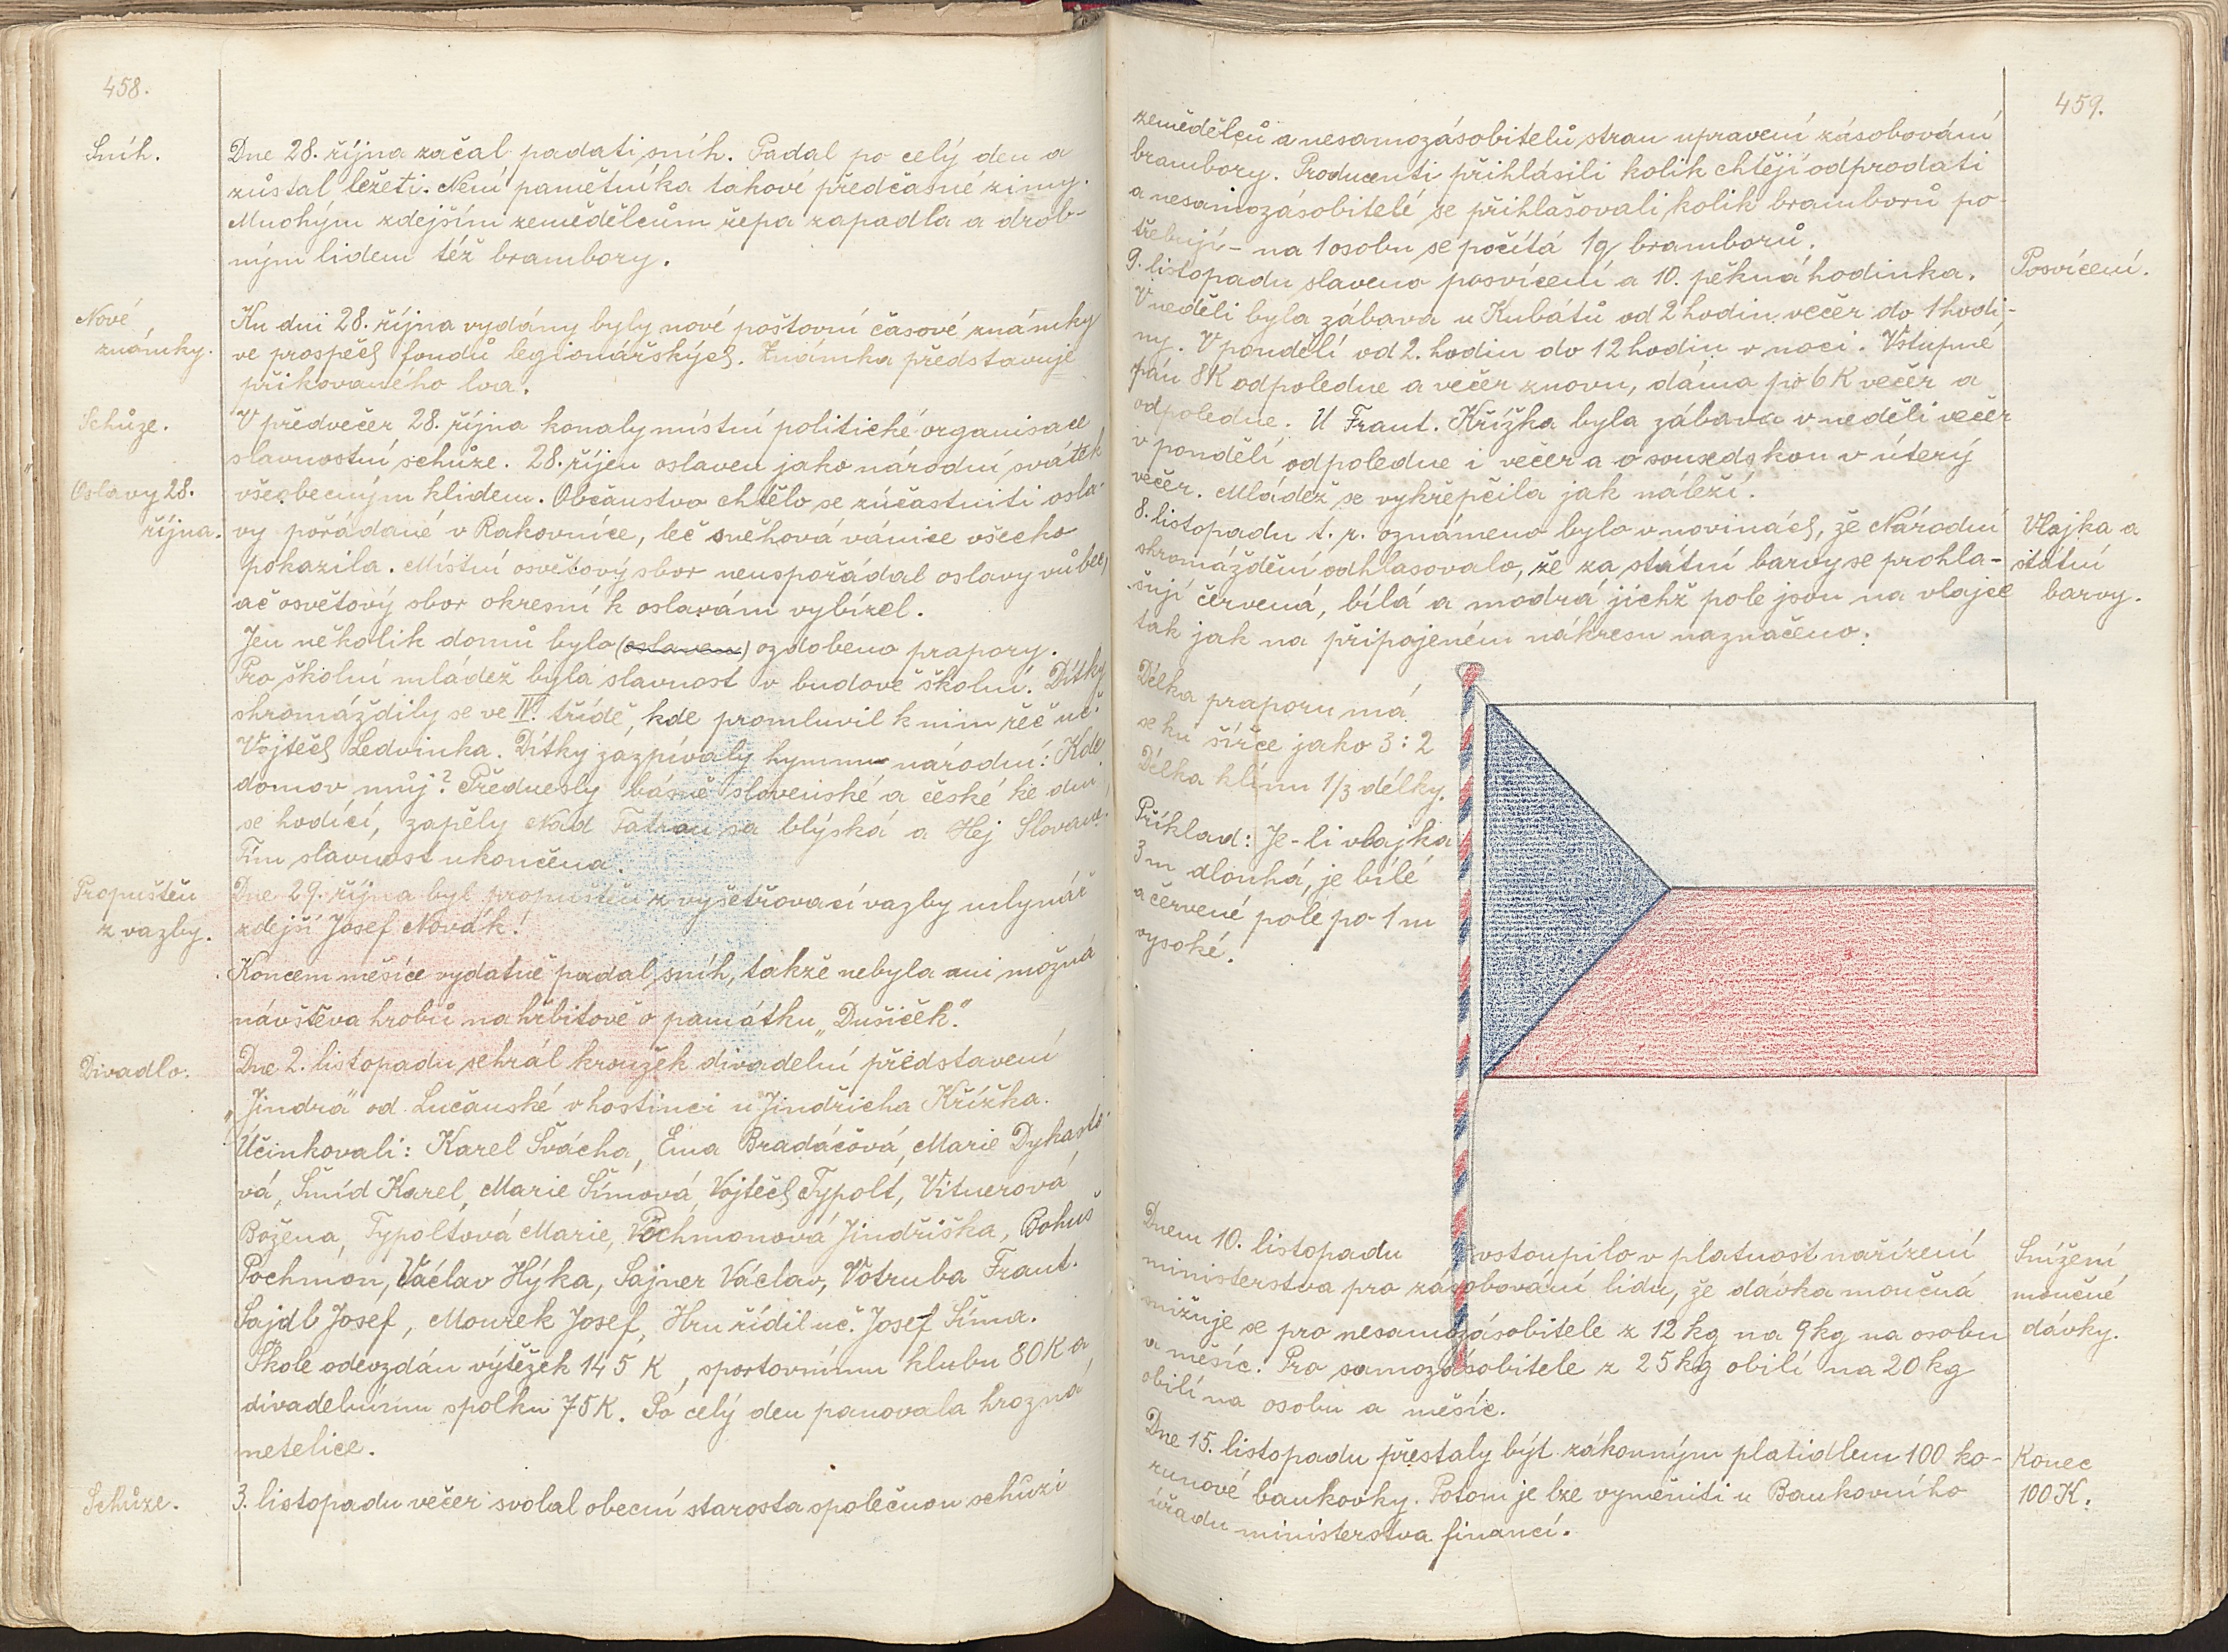 458.
Sníh.
Dne 28. října začal padati sníh. Padal po celý den a
zůstal ležeti. Není pamětníka takové předčasné zimy.
Mnohým zdejším zemědělcům řepa zapadla a drob-
ným lidem též brambory.
Nové
známky.
Ku dni 28. října vydány byly nové poštovní časové známky
ve prospěch fondů legionářských. Známka představuje
přikovaného lva.
Schůze.
V předvečer 28. října konaly místní politické organisace
slavnostní schůze. 28. říjen oslaven jako národní svátek
Oslavy 28.
října.
všeobecným klidem. Občanstvo chtělo se zúčastniti osla-
vy pořádané v Rakovníce, leč sněhová vánice všecko
pokazila. Místní osvětový sbor neuspořádal oslavy vůbec,
ač osvětový sbor okresní k oslavám vybízel.
Jen několik domů bylo (oslaveno) ozdobeno prapory.
Pro školní mládež byla slavnost v budově školní. Dítky
shromáždily se ve IV. třídě, kde promluvil k nim řeč uč.
Vojtěch Ledvinka. Dítky zazpívaly hymnu národní: Kde
domov můj? Přednesly básně slovenské a české ke dni
se hodící, zapěly Nad Tatrou sa blýská a Hej Slované.
Tím slavnost ukončena.
Propuštěn
z vazby.
Dne 29. října byl propuštěn z vyšetřovací vazby mlynář
zdejší Josef Novák!
Koncem měsíce vydatně padal sníh, takže nebyla ani možná
návštěva hrobů na hřbitově o památku „Dušiček".
Divadlo.
Dne 2. listopadu sehrál kroužek divadelní představení
„Jindra" od Lučanské v hostinci u Jindřicha Křížka.
Účinkovali: Karel Švácha, Ema Bradáčová, Marie Dykasto-
vá, Šmíd Karel, Marie Šímová, Vojtěch Typolt, Vitnerová
Božena, Typoltová Marie, Pochmonová Jindřiška, Bohuš
Pochmon, Václav Hýka, Sajner Václav, Votruba Frant.
Sajdl Josef, Mourek Josef, Hru řídil uč. Josef Šíma.
Škole odevzdán výtěžek 145 K, sportovnímu klubu 80 K a
divadelnímu spolku 75 K. Po celý den panovala hrozná
metelice.
Schůze.
3. listopadu večer svolal obecní starosta společnou schůzi
459.
zemědělců a nesamozásobitelů stran upravení zásobování
brambory. Producenti přihlásili kolik chtějí odprodati
a nesamozásobitelé se přihlašovali kolik bramborů po-
třebují - na 1 osobu se počítá 1 q bramborů.
Posvícení.
9. listopadu slaveno posvícení a 10. pěkná hodinka.
V neděli byla zábava u Kubátů od 2 hodin večer do 1 hodi-
ny. V pondělí od 2. hodin do 12 hodin v noci. Vstupné
pán 8 K odpoledne a večer znovu, dáma po 6 K večer a
odpoledne. U Frant. Křížka byla zábava v neděli večer
v pondělí odpoledne i večer a o sousedskou v úterý
večer. Mládež se vykřepčila jak náleží.
Vlajka a
státní
barvy.
8. listopadu t. r. oznámeno bylo v novinách, že Národní
shromáždění odhlasovalo, že za státní barvy se prohla-
šují červená, bílá a modrá jichž pole jsou na vlajce
tak jak na připojeném nákresu naznačeno.
Délka praporu má
se ku šířce jako 3:2
Délka klínu 1/3 délky.
Příklad: Je-li vlajka
3 m dlouhá, je bílé
a červené pole po 1 m
vysoké.
Snížení
moučné
dávky.
Dnem 10. listopadu vstoupilo v platnost nařízení
ministerstva pro zásobování lidu, že dávka moučná
snižuje se pro nesamozásobitele z 12 kg na 9 kg na osobu
a měsíc. Pro samozásobitele z 25 kg obilí na 20 kg
obilí na osobu a měsíc.
Konec
100 K.
Dne 15. listopadu přestaly být zákonným platidlem 100 ko-
runové bankovky. Potom je lze vyměniti u Bankovního
úřadu ministerstva financí.